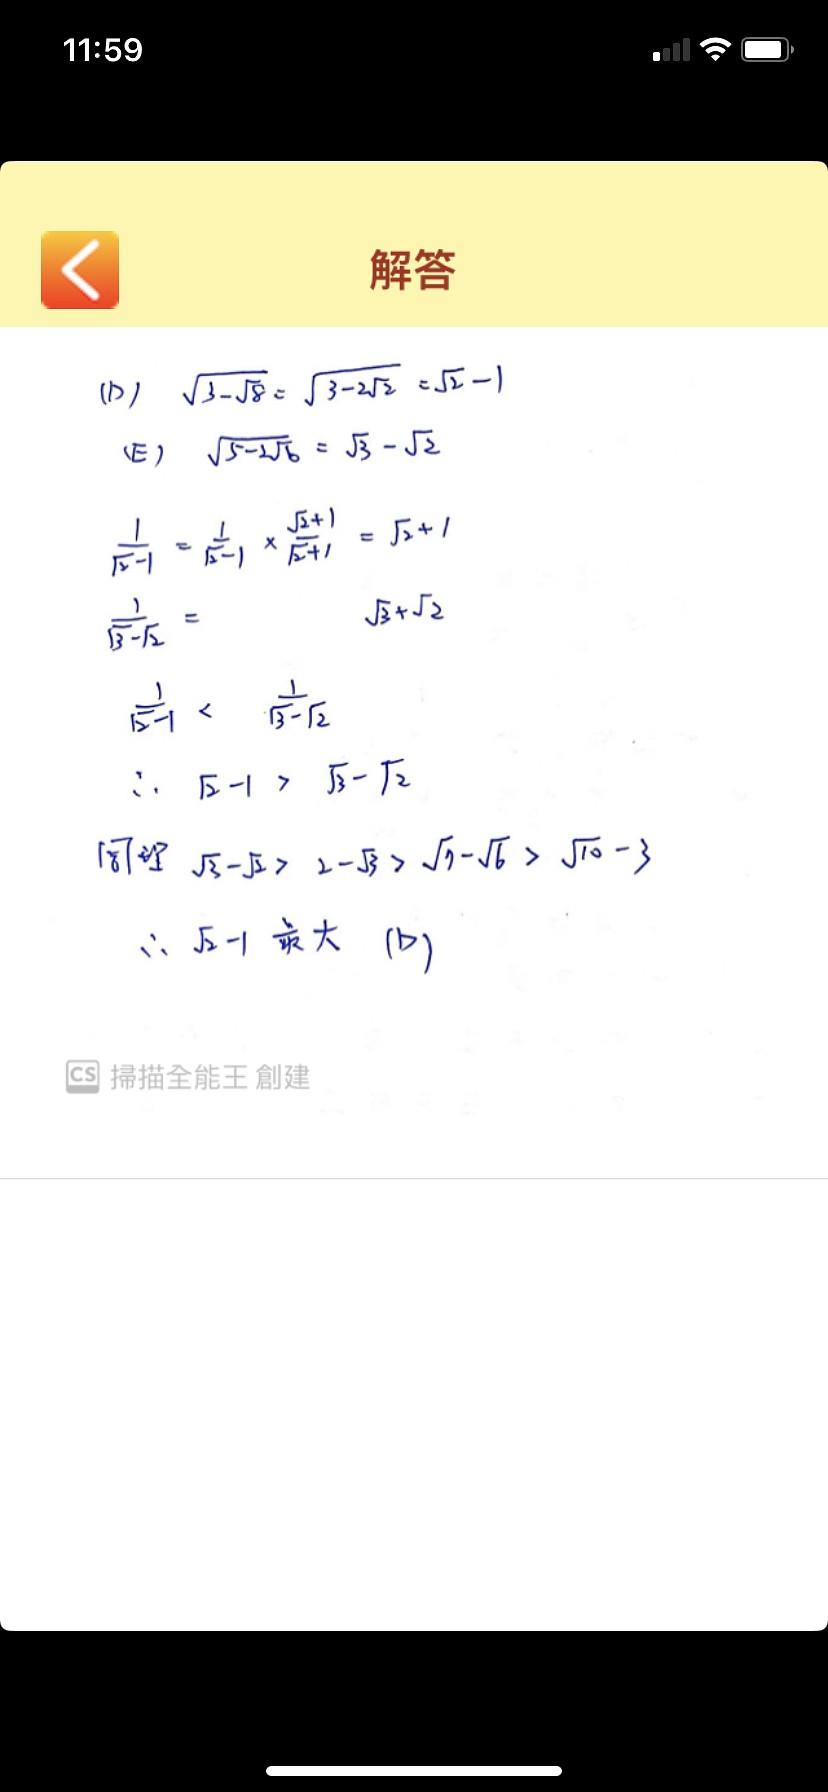 11:59
解答
(D) √(3-√8) = √(3-2√2) = √2 - 1
(E) √(5-2√6) = √3 - √2
1/(√2-1) = 1/(√2-1) × (√2+1)/(√2+1) = √2+1
1/(√3-√2) = √3+√2
1/(√2-1) < 1/(√3-√2)
∴ √2-1 > √3-√2
同理 √3-√2 > 2-√3 > √7-√6 > √10-3
∴ √2-1 最大 (D)
CS 掃描全能王 創建